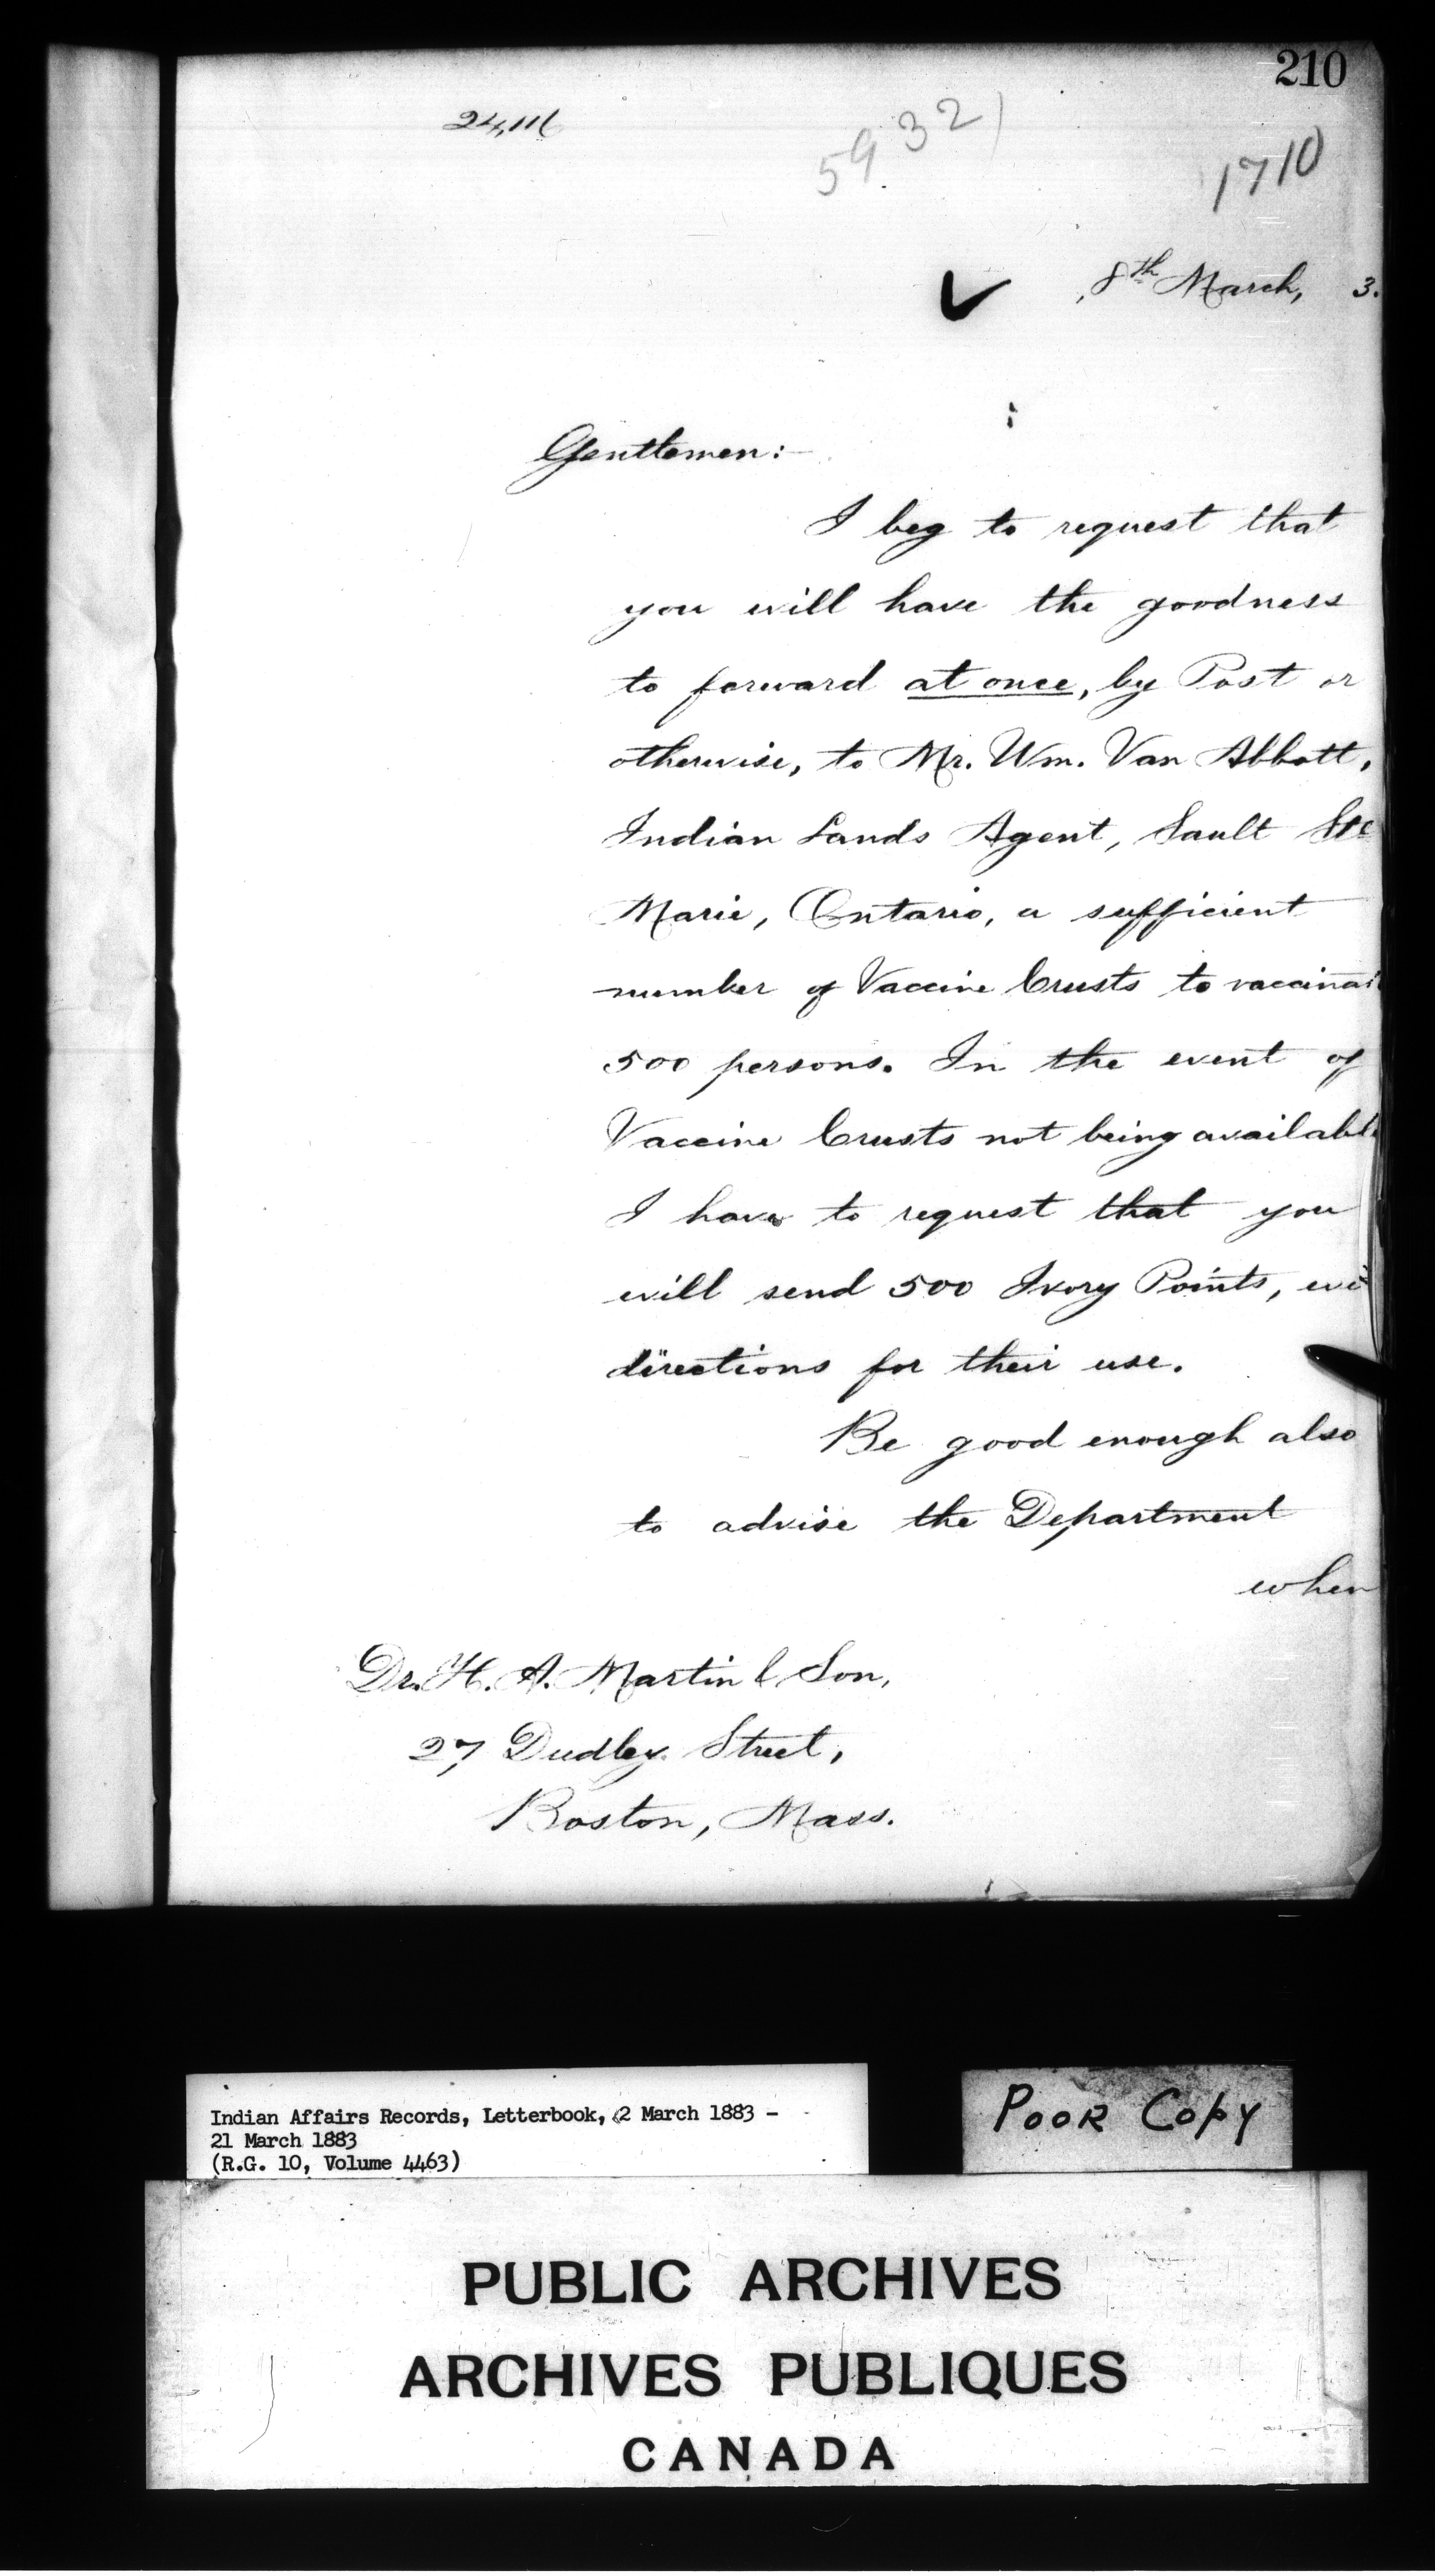 210
24,116
59321
1710
8th March, 3.
Gentlemen:-
I beg to request that
you will have the goodness
to forward at once, by Post or
otherwise, to Mr. Wm. Van Abbott,
Indian Lands Agent, Sault Ste
Marie, Ontario, a sufficient
number of Vaccine Crusts to vaccinat
500 persons. In the event of
Vaccine Crusts not being availabl
I have to request that you
will send 500 Ivory Points, wi
directions for their use.
Be good enough also
to advise the Department
when
Dr. H. A. Martin & Son,
27 Dudley Street,
Boston, Mass.
Indian Affairs Records, Letterbook, 2 March 1883 -
21 March 1883
(R.G. 10, Volume 4463)
POOR COPY
PUBLIC ARCHIVES
ARCHIVES PUBLIQUES
CANADA